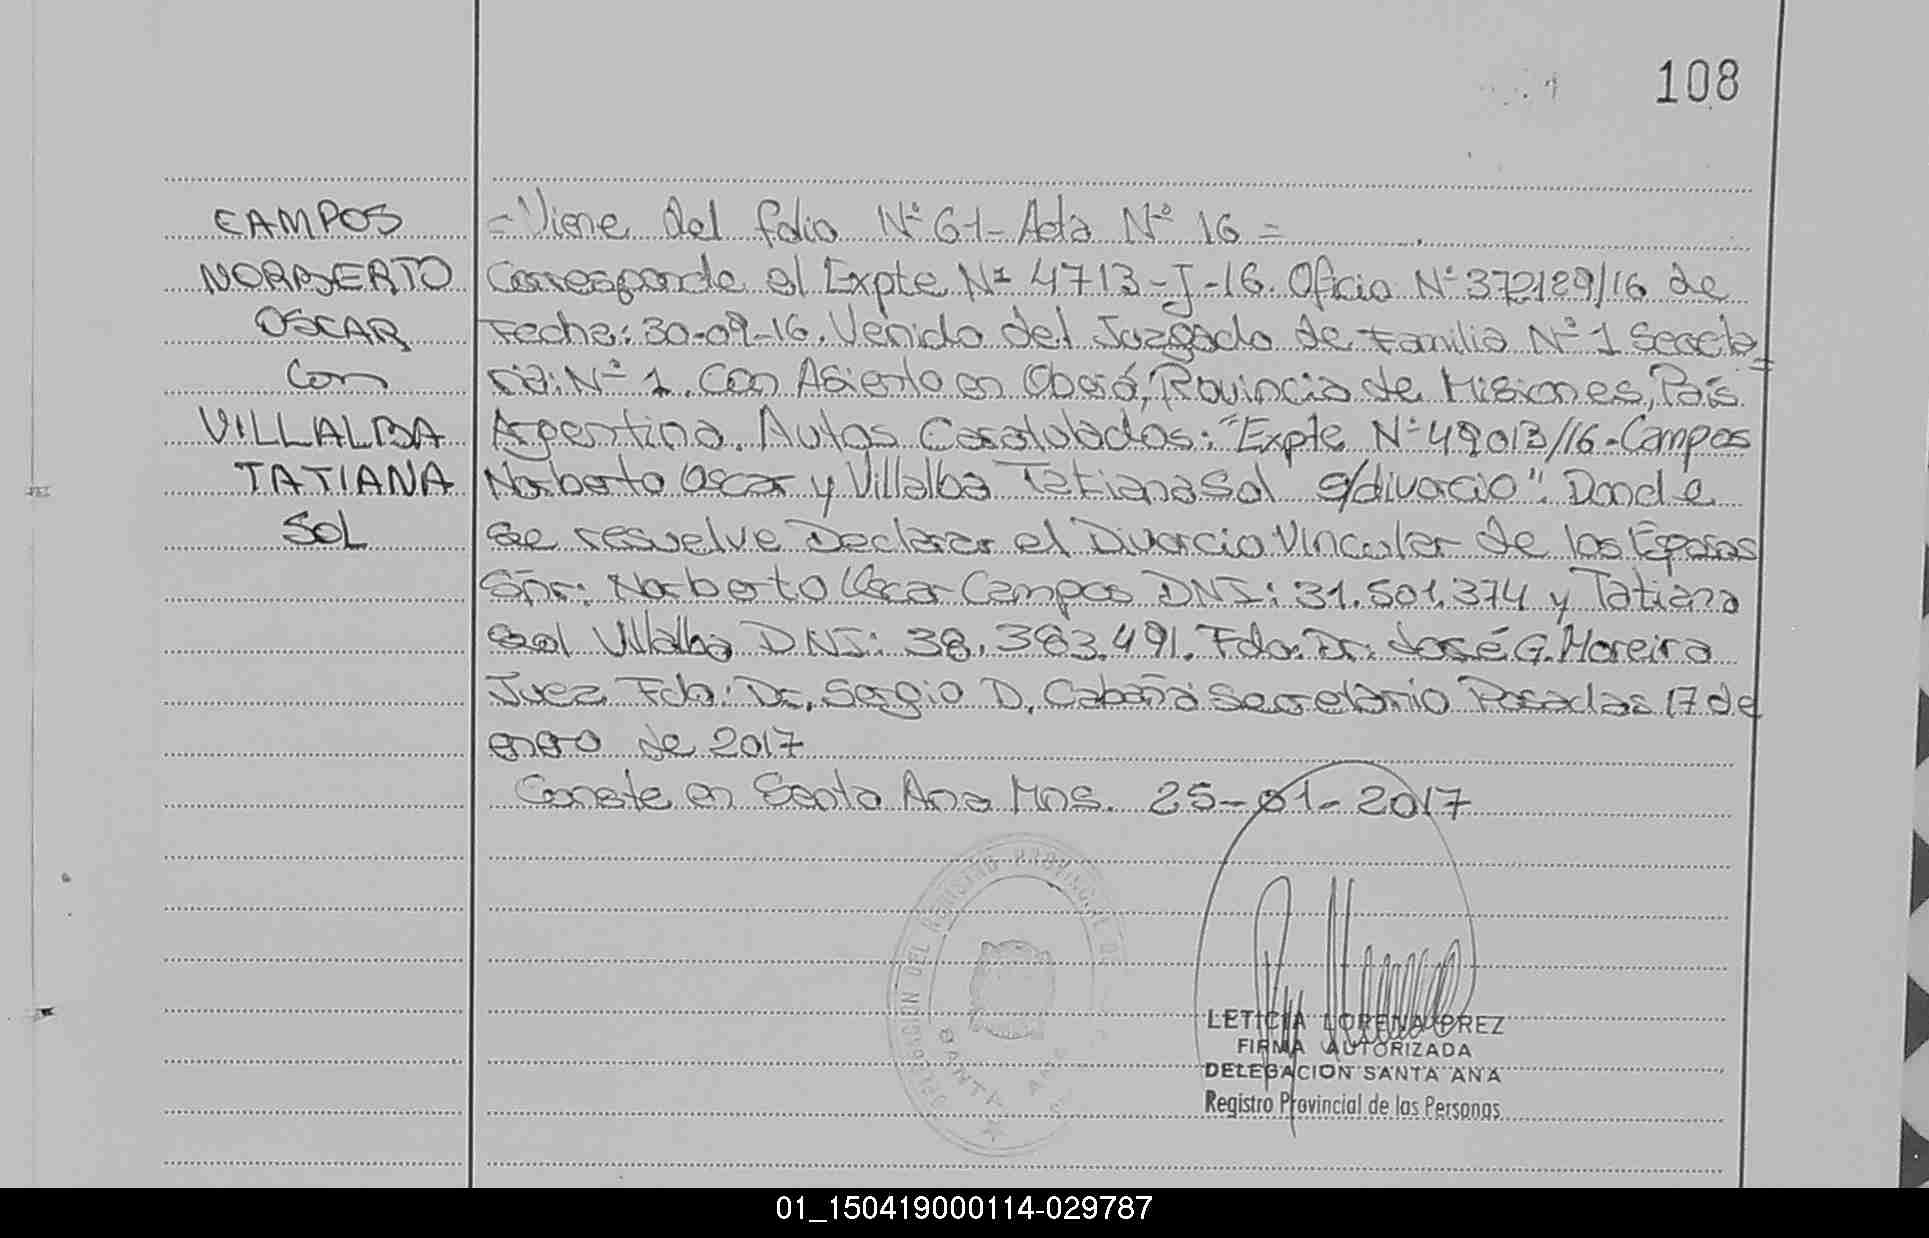 108
CAMPOS
NORBERTO
OSCAR
Con
VILLALBA
TATIANA
SOL
=Viene del folio Nº 61- Acta Nº 16=
Corresponde al Expte Nº 4713-J-16. Oficio Nº 372189/16 de
Fecha: 30-09-16. Venido del Juzgado de Familia Nº 1 Secreta=
ria: Nº 1. Con Asiento en Oberá, Provincia de Misiones, País
Argentina. Autos Caratulados: "Expte Nº 49013/16-Campos
Norberto Oscar y Villalba Tatiana Sol s/divorcio". Donde
se resuelve Declarar el Divorcio Vincular de los Esposos
Snr: Norberto Oscar Campos DNI: 31.501.374 y Tatiana
Sol Villalba DNI: 38.383.491. Fdo: Dr. José G. Moreira
Juez Fdo: Dr. Sergio D. Cabaña Secretario Posadas 17 de
enero de 2017
Conste en Santa Ana Mns. 25-01-2017
DELEGACION DEL REGISTRO PROVINCIAL DE
SANTA ANA
LETICIA LORENA PREZ
FIRMA AUTORIZADA
DELEGACION SANTA ANA
Registro Provincial de las Personas
01_150419000114-029787